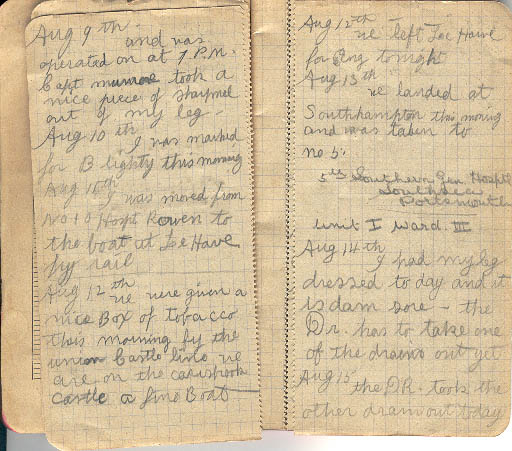 Aug 9th -
and was
operated on at 7 P.M.
Capt munroe took a
nice piece of shrapnel
out of my leg -
Aug 10th
I was marked
for Blighty this morning
Aug 11th
I was moved from
No 10 Hospt Rowen to
the boat at Le Have
by rail
Aug 12th
we were given a
nice Box of tobacco
this morning by the
union Castle line we
are on the carisbrook
Castle a fine Boat
Aug 12th -
we left Le Have
for Eng tonight
Aug 13th
we landed at
Southhampton this morning
and was taken to
no 5.
5th Southern Gen Hospital
Southsea
Portsmouth
Unit I ward III
Aug 14th
I had my leg
dressed to day and it
is dam sore - the
Dr. has to take one
of the drains out yet
Aug 15
the DR. took the
other drain out today